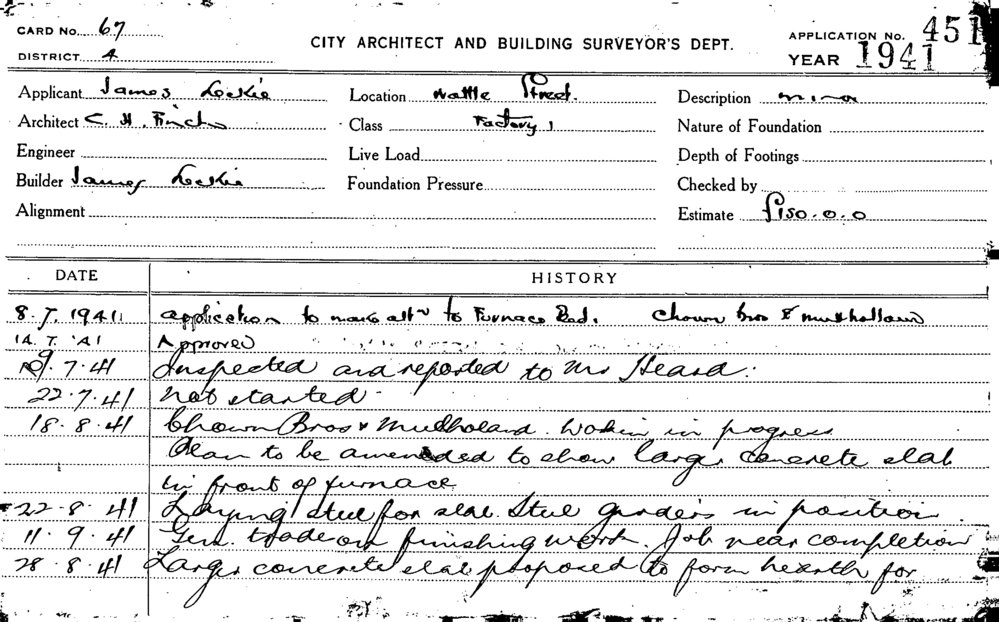 CARD No. 67
DISTRICT 4
CITY ARCHITECT AND BUILDING SURVEYOR'S DEPT.
APPLICATION No. 451
YEAR 1941
Applicant James Leckie Location Wattle Street. Description minor
Architect C. H. Finch Class Factory 1 Nature of Foundation
Engineer Live Load Depth of Footings
Builder James Leckie Foundation Pressure Checked by
Alignment Estimate £150.0.0
DATE HISTORY
8.7.1941 application to make altn to Furnace Bed. Chown Bros & Mulholland
14.7.'41 Approved
19.7.41 Inspected and reported to Mr Heard.
22.7.41 Not started
18.8.41 Chown Bros & Mulholand. Work in progress
Plan to be amended to show larger concrete slab
in front of furnace
22.8.41 Laying steel for slab. Steel girders in position
11.9.41 Genl. trades on finishing work. Job near completion
28.8.41 Larger concrete slab proposed to form hearth for